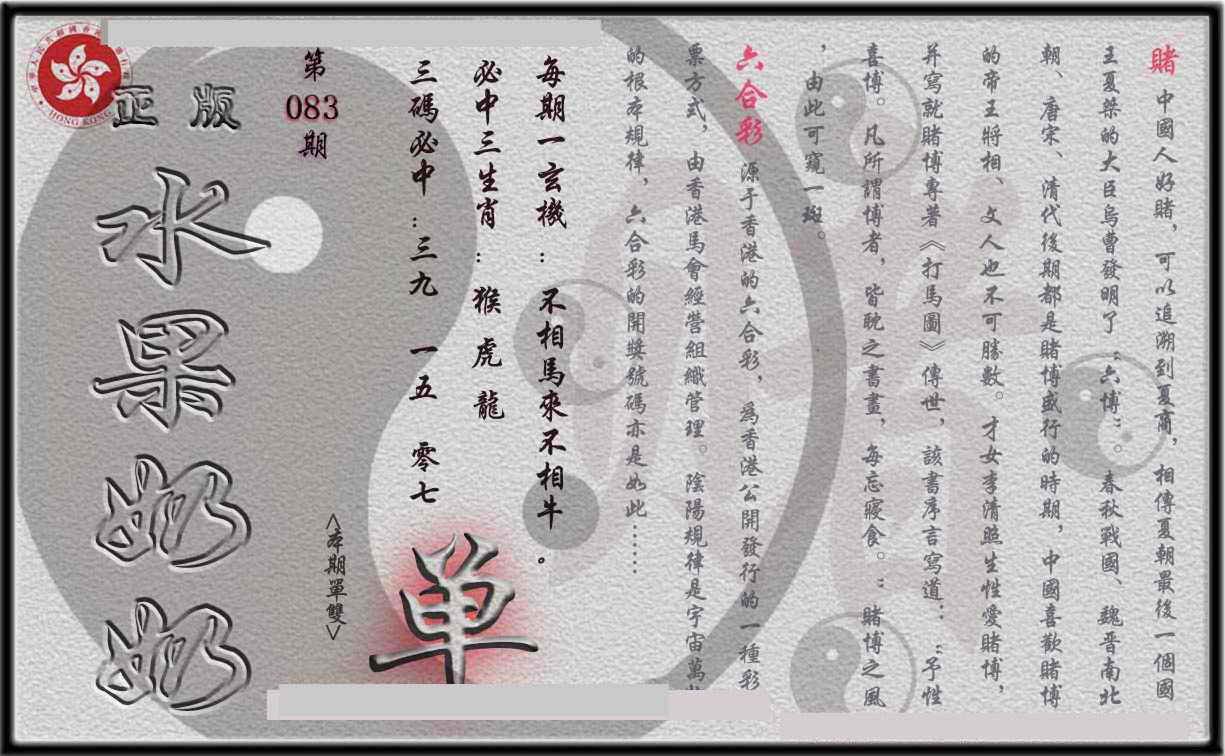 賭 中國人好賭，可以追溯到夏商，相傳夏朝最後一個國
王夏桀的大臣烏曹發明了“六博”。春秋戰國、魏晉南北
朝、唐宋、清代後期都是賭博盛行的時期，中國喜歡賭博
的帝王將相、文人也不可勝數。才女李清照生性愛賭博，
并寫就賭博專著《打馬圖》傳世，該書序言寫道：“予性
喜博。凡所謂博者，皆耽之書畫，每忘寢食。”賭博之風
，由此可窺一斑。
六合彩 源于香港的六合彩，為香港公開發行的一種彩
票方式，由香港馬會經營組織管理。陰陽規律是宇宙萬
的根本規律，六合彩的開獎號碼亦是如此……
每期一玄機：不相馬來不相牛。
必中三生肖：猴 虎 龍
三碼必中：三九 一五 零七
单
<本期單雙>
第083期
正版
水果奶奶
HONG KONG